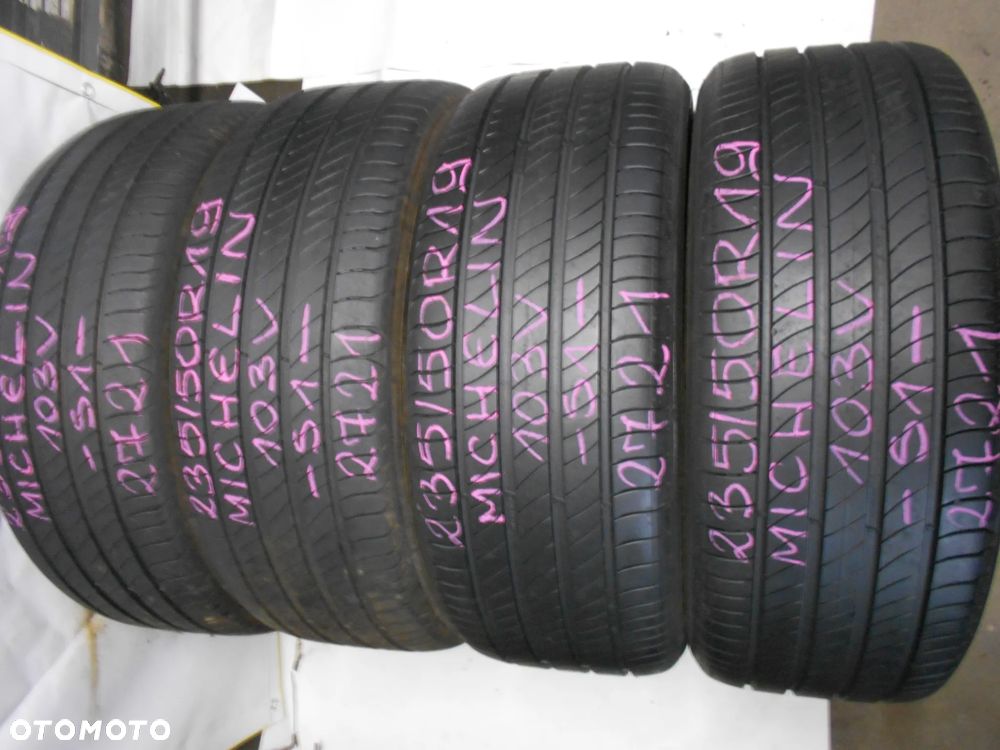 MICHELIN
103V
-51-
2721
235/50R19
MICHELIN
103V
-51-
2721
235/50R19
MICHELIN
103V
-51-
2721
235/50R19
MICHELIN
103V
-51-
2721
OTOMOTO